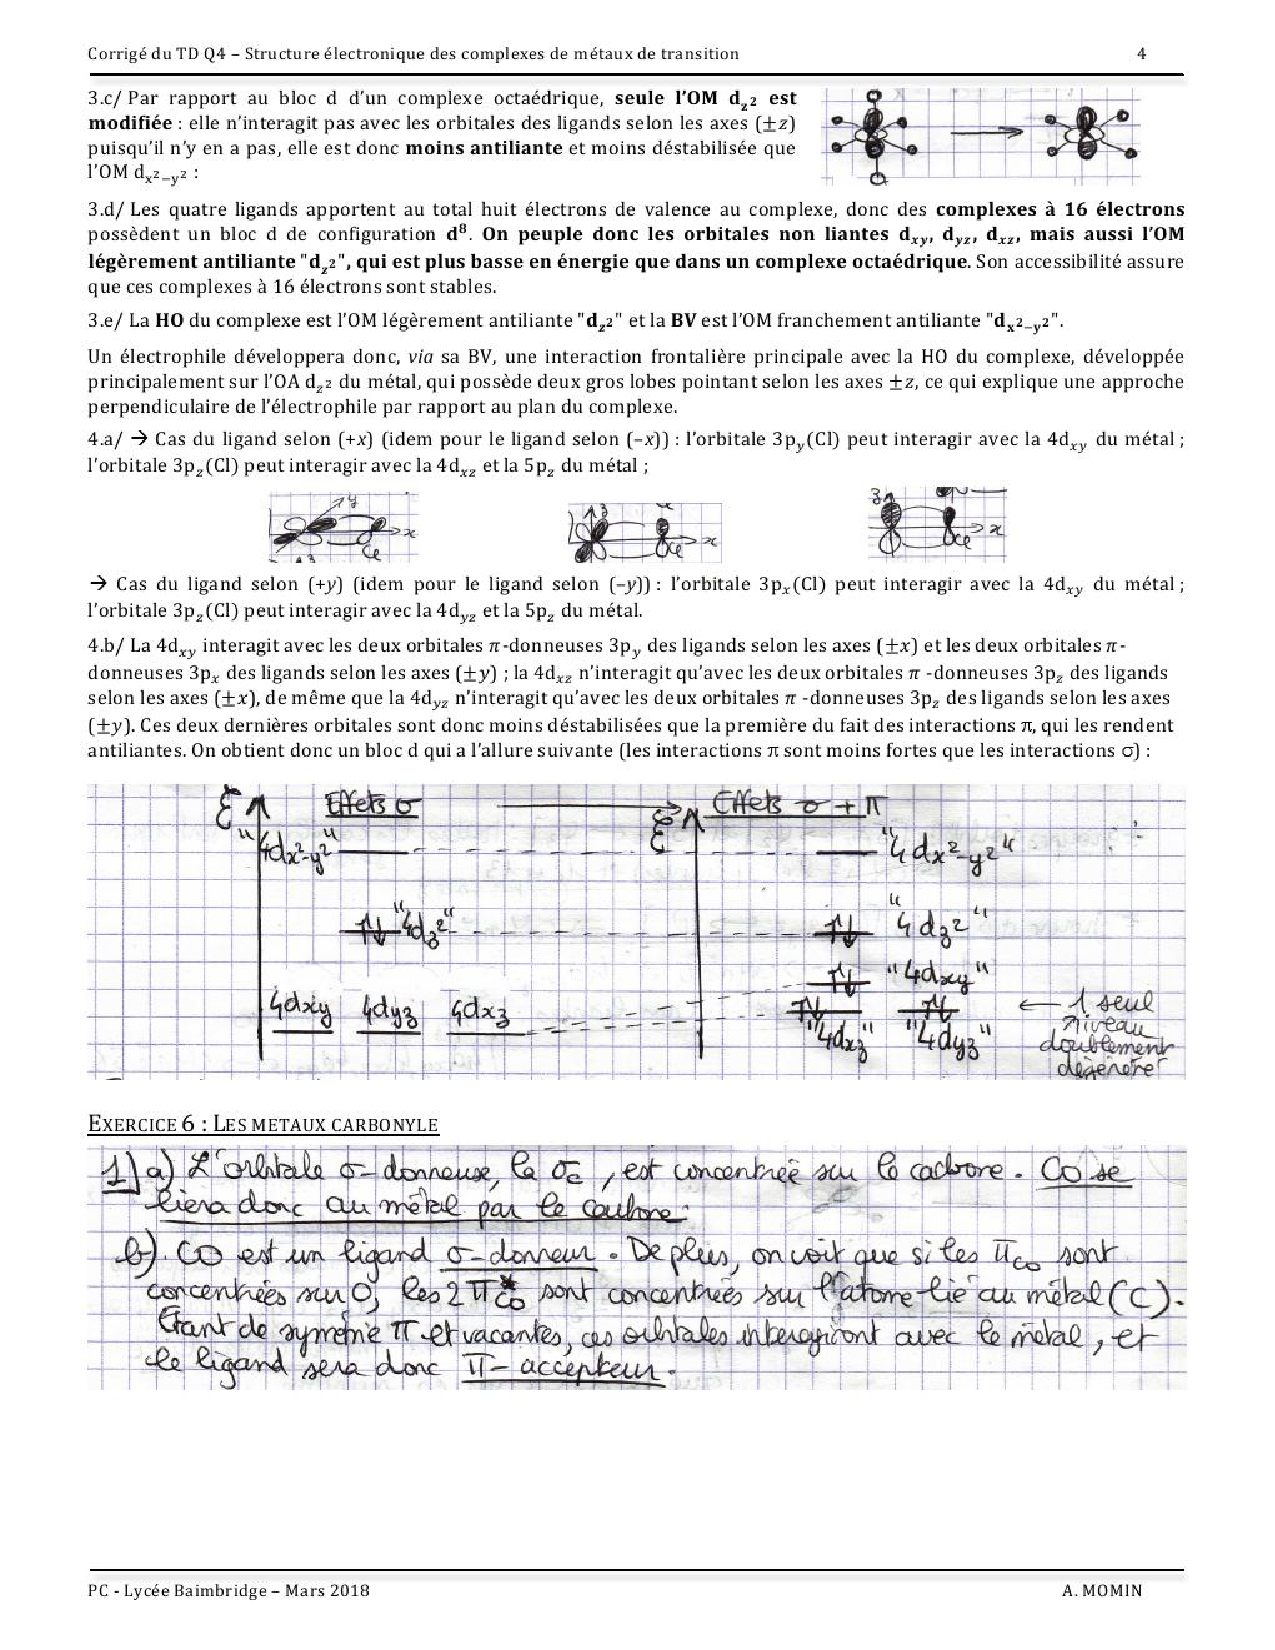 Corrigé du TD Q4 – Structure électronique des complexes de métaux de transition 4
3.c/ Par rapport au bloc d d'un complexe octaédrique, seule l'OM d_z² est
modifiée : elle n'interagit pas avec les orbitales des ligands selon les axes (±z)
puisqu'il n'y en a pas, elle est donc moins antiliante et moins déstabilisée que
l'OM d_x²−y² :
3.d/ Les quatre ligands apportent au total huit électrons de valence au complexe, donc des complexes à 16 électrons
possèdent un bloc d de configuration d⁸. On peuple donc les orbitales non liantes d_xy, d_yz, d_xz, mais aussi l'OM
légèrement antiliante "d_z²", qui est plus basse en énergie que dans un complexe octaédrique. Son accessibilité assure
que ces complexes à 16 électrons sont stables.
3.e/ La HO du complexe est l'OM légèrement antiliante "d_z²" et la BV est l'OM franchement antiliante "d_x²−y²".
Un électrophile développera donc, via sa BV, une interaction frontalière principale avec la HO du complexe, développée
principalement sur l'OA d_z² du métal, qui possède deux gros lobes pointant selon les axes ±z, ce qui explique une approche
perpendiculaire de l'électrophile par rapport au plan du complexe.
4.a/ → Cas du ligand selon (+x) (idem pour le ligand selon (–x)) : l'orbitale 3p_y(Cl) peut interagir avec la 4d_xy du métal ;
l'orbitale 3p_z(Cl) peut interagir avec la 4d_xz et la 5p_z du métal ;
y x Cl
z x Cl
z x Cl
→ Cas du ligand selon (+y) (idem pour le ligand selon (–y)) : l'orbitale 3p_x(Cl) peut interagir avec la 4d_xy du métal ;
l'orbitale 3p_z(Cl) peut interagir avec la 4d_yz et la 5p_z du métal.
4.b/ La 4d_xy interagit avec les deux orbitales π-donneuses 3p_y des ligands selon les axes (±x) et les deux orbitales π-
donneuses 3p_x des ligands selon les axes (±y) ; la 4d_xz n'interagit qu'avec les deux orbitales π -donneuses 3p_z des ligands
selon les axes (±x), de même que la 4d_yz n'interagit qu'avec les deux orbitales π -donneuses 3p_z des ligands selon les axes
(±y). Ces deux dernières orbitales sont donc moins déstabilisées que la première du fait des interactions π, qui les rendent
antiliantes. On obtient donc un bloc d qui a l'allure suivante (les interactions π sont moins fortes que les interactions σ) :
ℰ Effets σ ℰ Effets σ + π
"4dx²-y²" "4dx²-y²"
"4dz²" "4dz²"
"4dxy"
4dxy 4dyz 4dxz ← 1 seul
"4dxz" "4dyz" niveau
doublement
dégénéré
EXERCICE 6 : LES METAUX CARBONYLE
1) a) L'orbitale σ-donneuse, la σc, est concentrée sur le carbone. CO se
liera donc au métal par le carbone.
b). CO est un ligand σ-donneur. De plus, on voit que si les πco sont
concentrées sur O, les 2 π*co sont concentrées sur l'atome lié au métal (C).
Etant de symétrie π et vacantes, ces orbitales interagiront avec le métal, et
le ligand sera donc π-accepteur.
PC - Lycée Baimbridge – Mars 2018 A. MOMIN